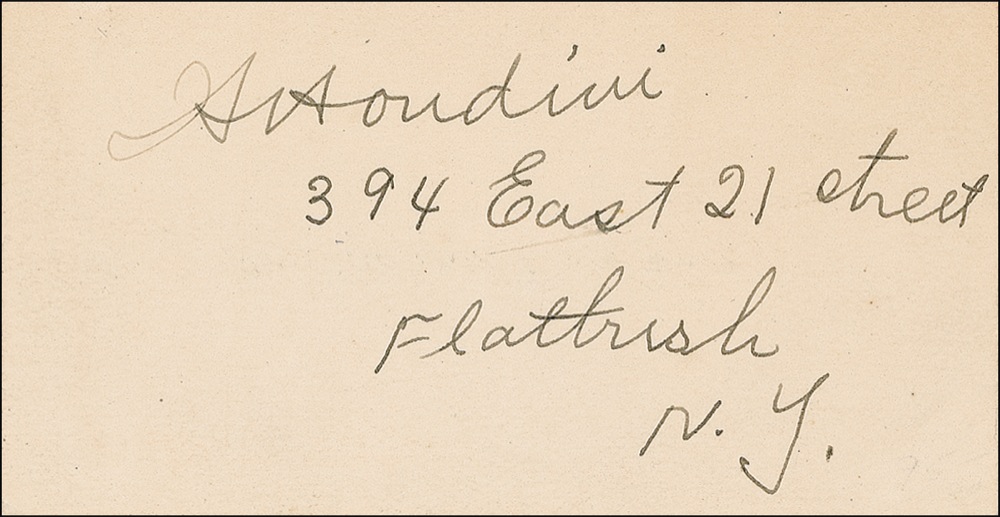 H Houdini
394 East 21 street
Flatbush
N. Y.